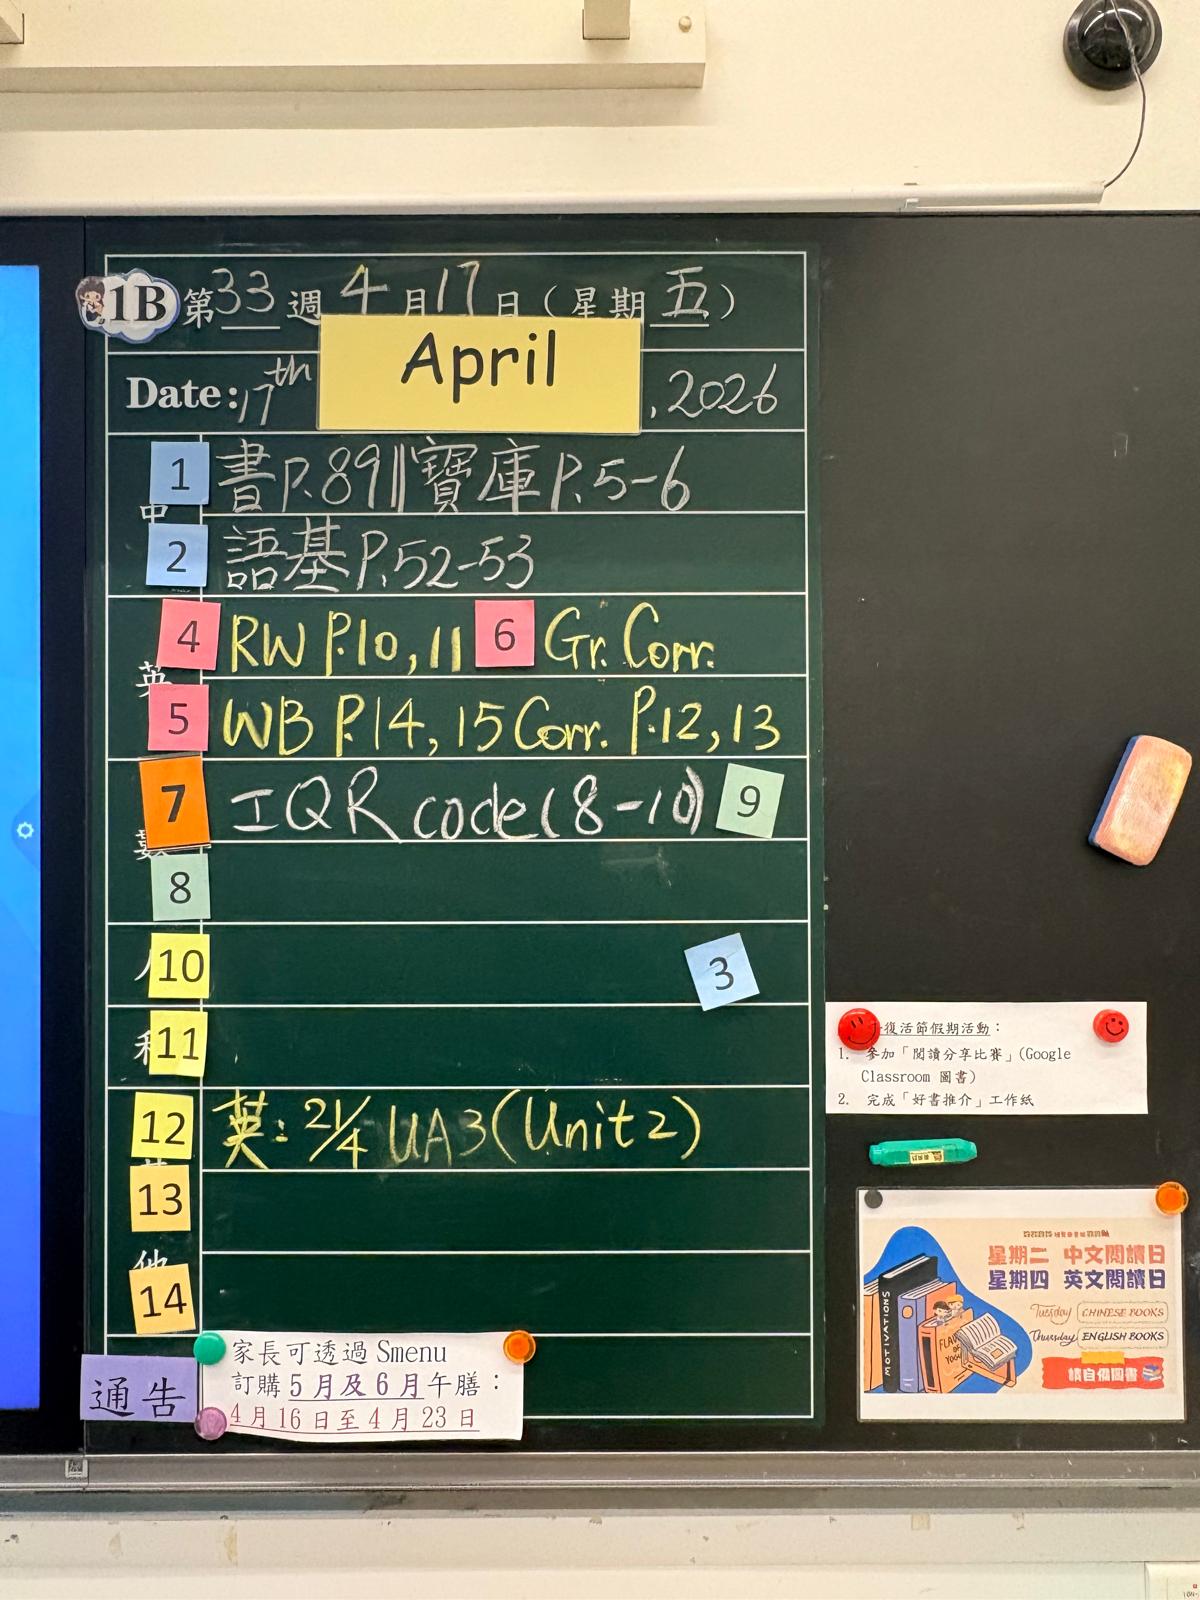 1B 第33週 4月17日(星期五)
Date: 17th April, 2026
中
1 書P.89||寶庫P.5-6
2 語基P.52-53
英
4 RW P.10, 11 6 Gr. Corr.
5 WB P.14, 15 Corr. P.12, 13
數
7 工QR code(8-10) 9
8
10 3
11
12 英: 21/4 UA3(Unit 2)
13
他
14
通告
家長可透過 Smenu
訂購 5 月及 6 月午膳:
4 月 16 日至 4 月 23 日
復活節假期活動:
1. 參加「閱讀分享比賽」(Google
Classroom 圖書)
2. 完成「好書推介」工作紙
星期二 中文閱讀日
星期四 英文閱讀日
Tuesday CHINESE BOOKS
Thursday ENGLISH BOOKS
請自備圖書
MOTIVATIONS